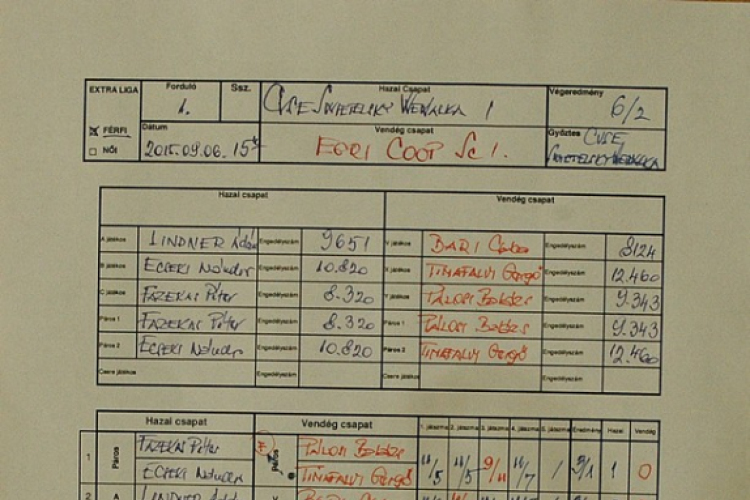 EXTRA LIGA Forduló Ssz. Hazai Csapat Végeredmény
1. CVSE SWIETELSKY WEWALKA 1 6/2
FÉRFI Dátum Vendég csapat Győztes CVSE,
NŐI 2015.09.06. 15 EGRI COOP SC 1. SWIETELSKY WEWALKA
Hazai csapat Vendég csapat
A játékos LINDNER Ádám Engedélyszám 9651 X játékos BARI Csaba Engedélyszám 8124
B játékos ECSEKI Nándor Engedélyszám 10.820 TIMAFALVI Gergő Engedélyszám 12.460
C játékos FAZEKAS Péter Engedélyszám 8.320 Y játékos PÁLOSI Balázs Engedélyszám 9.343
Páros 1 FAZEKAS Péter Engedélyszám 8.320 Páros 1 PÁLOSI Balázs Engedélyszám 9.343
Páros 2 ECSEKI Nándor Engedélyszám 10.820 Páros 2 TIMAFALVI Gergő Engedélyszám 12.460
Csere játékos Engedélyszám Csere játékos Engedélyszám
Hazai csapat Vendég csapat 1. játszma 2. játszma 3. játszma 4. játszma 5. játszma Eredmény Hazai Vendég
1 Páros FAZEKAS Péter Páros PÁLOSI Balázs 11/5 11/5 9/11 11/7 / 3/1 1 0
ECSEKI Nándor TIMAFALVI Gergő
2 A LINDNER